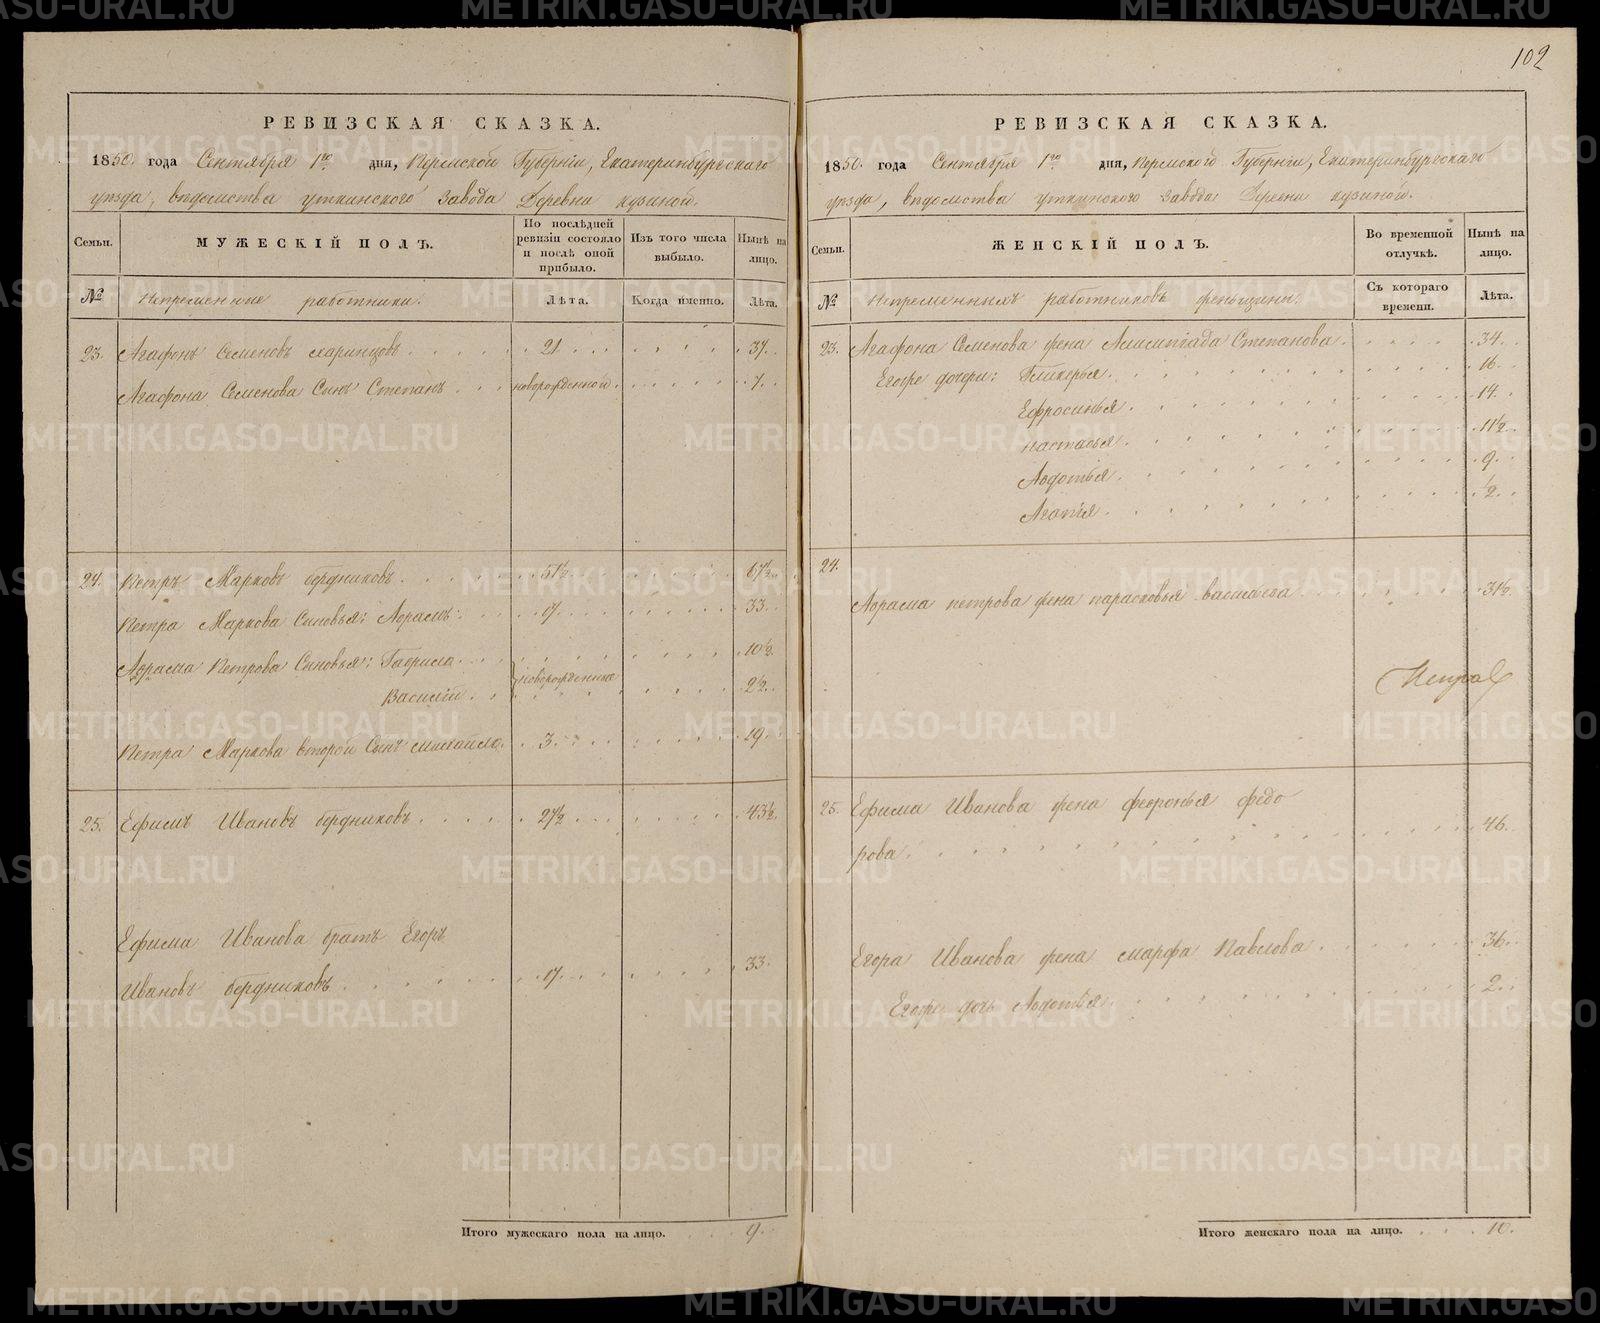 102
РЕВИЗСКАЯ СКАЗКА.
1850. года Сентября 1го дня, Пермской Губернiи, Екатеринбургскаго
уѣзда, вѣдомства уткинского завода Деревни кузиной.
Семьи.
МУЖЕСКIЙ ПОЛЪ.
По послѣдней ревизiи состояло и послѣ оной прибыло.
Изъ того числа выбыло.
Нынѣ на лицо.
№
Непременные работники.
Лѣта.
Когда именно.
Лѣта.
23. Агафонъ Семеновъ 21 37.
Агафона Семенова Сынъ Степанъ новорожденной 7.
24. Петръ Марковъ бердниковъ 51½ 67½
Петра Маркова Сыновья: Абрамъ 17. 33.
Абрама Петрова Сыновья: Гаврила 10½
новорожденные
Василiй 2½
Петра Маркова второй Сынъ михайло 3. 19.
25. Ефимъ Ивановъ бердниковъ 27½ 43½
Ефима Иванова братъ Егоръ
Ивановъ бердниковъ 17. 33.
Итого мужескаго пола на лицо. 9.
РЕВИЗСКАЯ СКАЗКА.
1850. года Сентября 1го дня, Пермского Губернiи, Екатеринбургскаго
уѣзда, вѣдомства уткинского завода Деревни кузиной.
Семьи.
ЖЕНСКIЙ ПОЛЪ.
Во временной отлучкѣ.
Нынѣ на лицо.
№
Непременныхъ работниковъ женьщины.
Съ котораго времени.
Лѣта.
23. Агафона Семенова жена Алимпiада Степанова 34.
Егоже дочери: Гликерья 16.
Ефросинья 14.
настасья 11½
Авдотья 9.
Агапiя ½
24.
Абрама петрова жена парасковья васильева 31½
25. Ефима Иванова жена февронья федо
рова 46.
Егора Иванова жена марфа Павлова 36.
Егоже дочь Авдотья 2.
Итого женскаго пола на лицо. 10.
METRIKI.GASO-URAL.RU